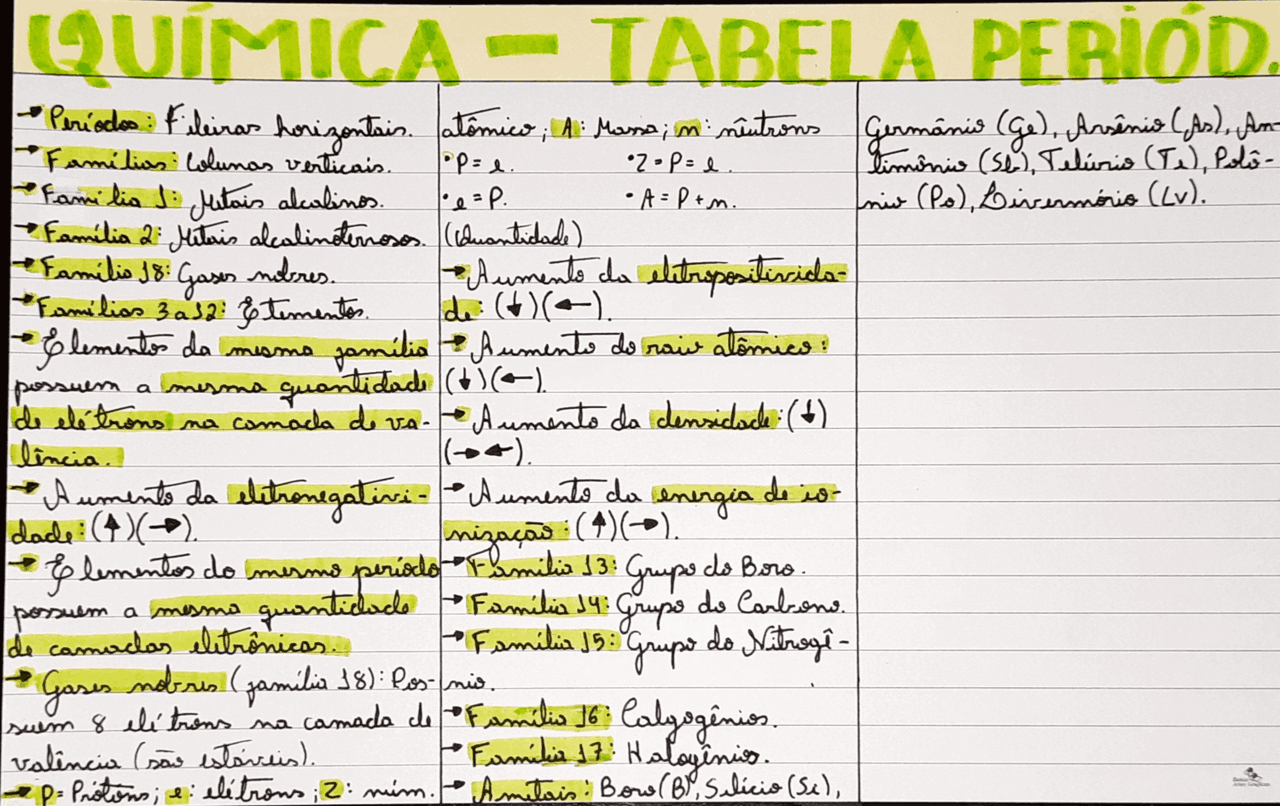 QUÍMICA - TABELA PERIÓD.
→ Períodos: Fileiras horizontais.
→ Famílias: Colunas verticais.
→ Família 1: Metais alcalinos.
→ Família 2: Metais alcalinoterrosos.
→ Família 18: Gases nobres.
→ Famílias 3 a 12: Etementos.
→ Elementos da mesma família
possuem a mesma quantidade
de elétrons na camada de va-
lência.
→ Aumento da eletronegativi-
dade: (↑)(→).
→ Elementos do mesmo período
possuem a mesma quantidade
de camadas eletrônicas.
→ Gases nobres (família 18): Pos-
suem 8 elétrons na camada de
valência (são estáveis).
→ P= Prótons; e: elétrons; Z: núm.
atômico; A: Massa; n: nêutrons
•P = e. •Z = P = e.
•e = P. •A = P + n.
(Quantidade)
→ Aumento da eletropositivida-
de: (↓)(←).
→ Aumento do raio atômico:
(↓)(←).
→ Aumento da densidade: (↓)
(→←).
→ Aumento da energia de io-
nização: (↑)(→).
→ Família 13: Grupo do Boro.
→ Família 14: Grupo do Carbono.
→ Família 15: Grupo do Nitrogê-
nio.
→ Família 16: Calgogênios.
→ Família 17: Halogênios.
→ Ametais: Boro (B), Silício (Si),
Germânio (Ge), Arsênio (As), An-
timônio (Sb), Telúrio (Te), Polô-
nio (Po), Livermório (Lv).